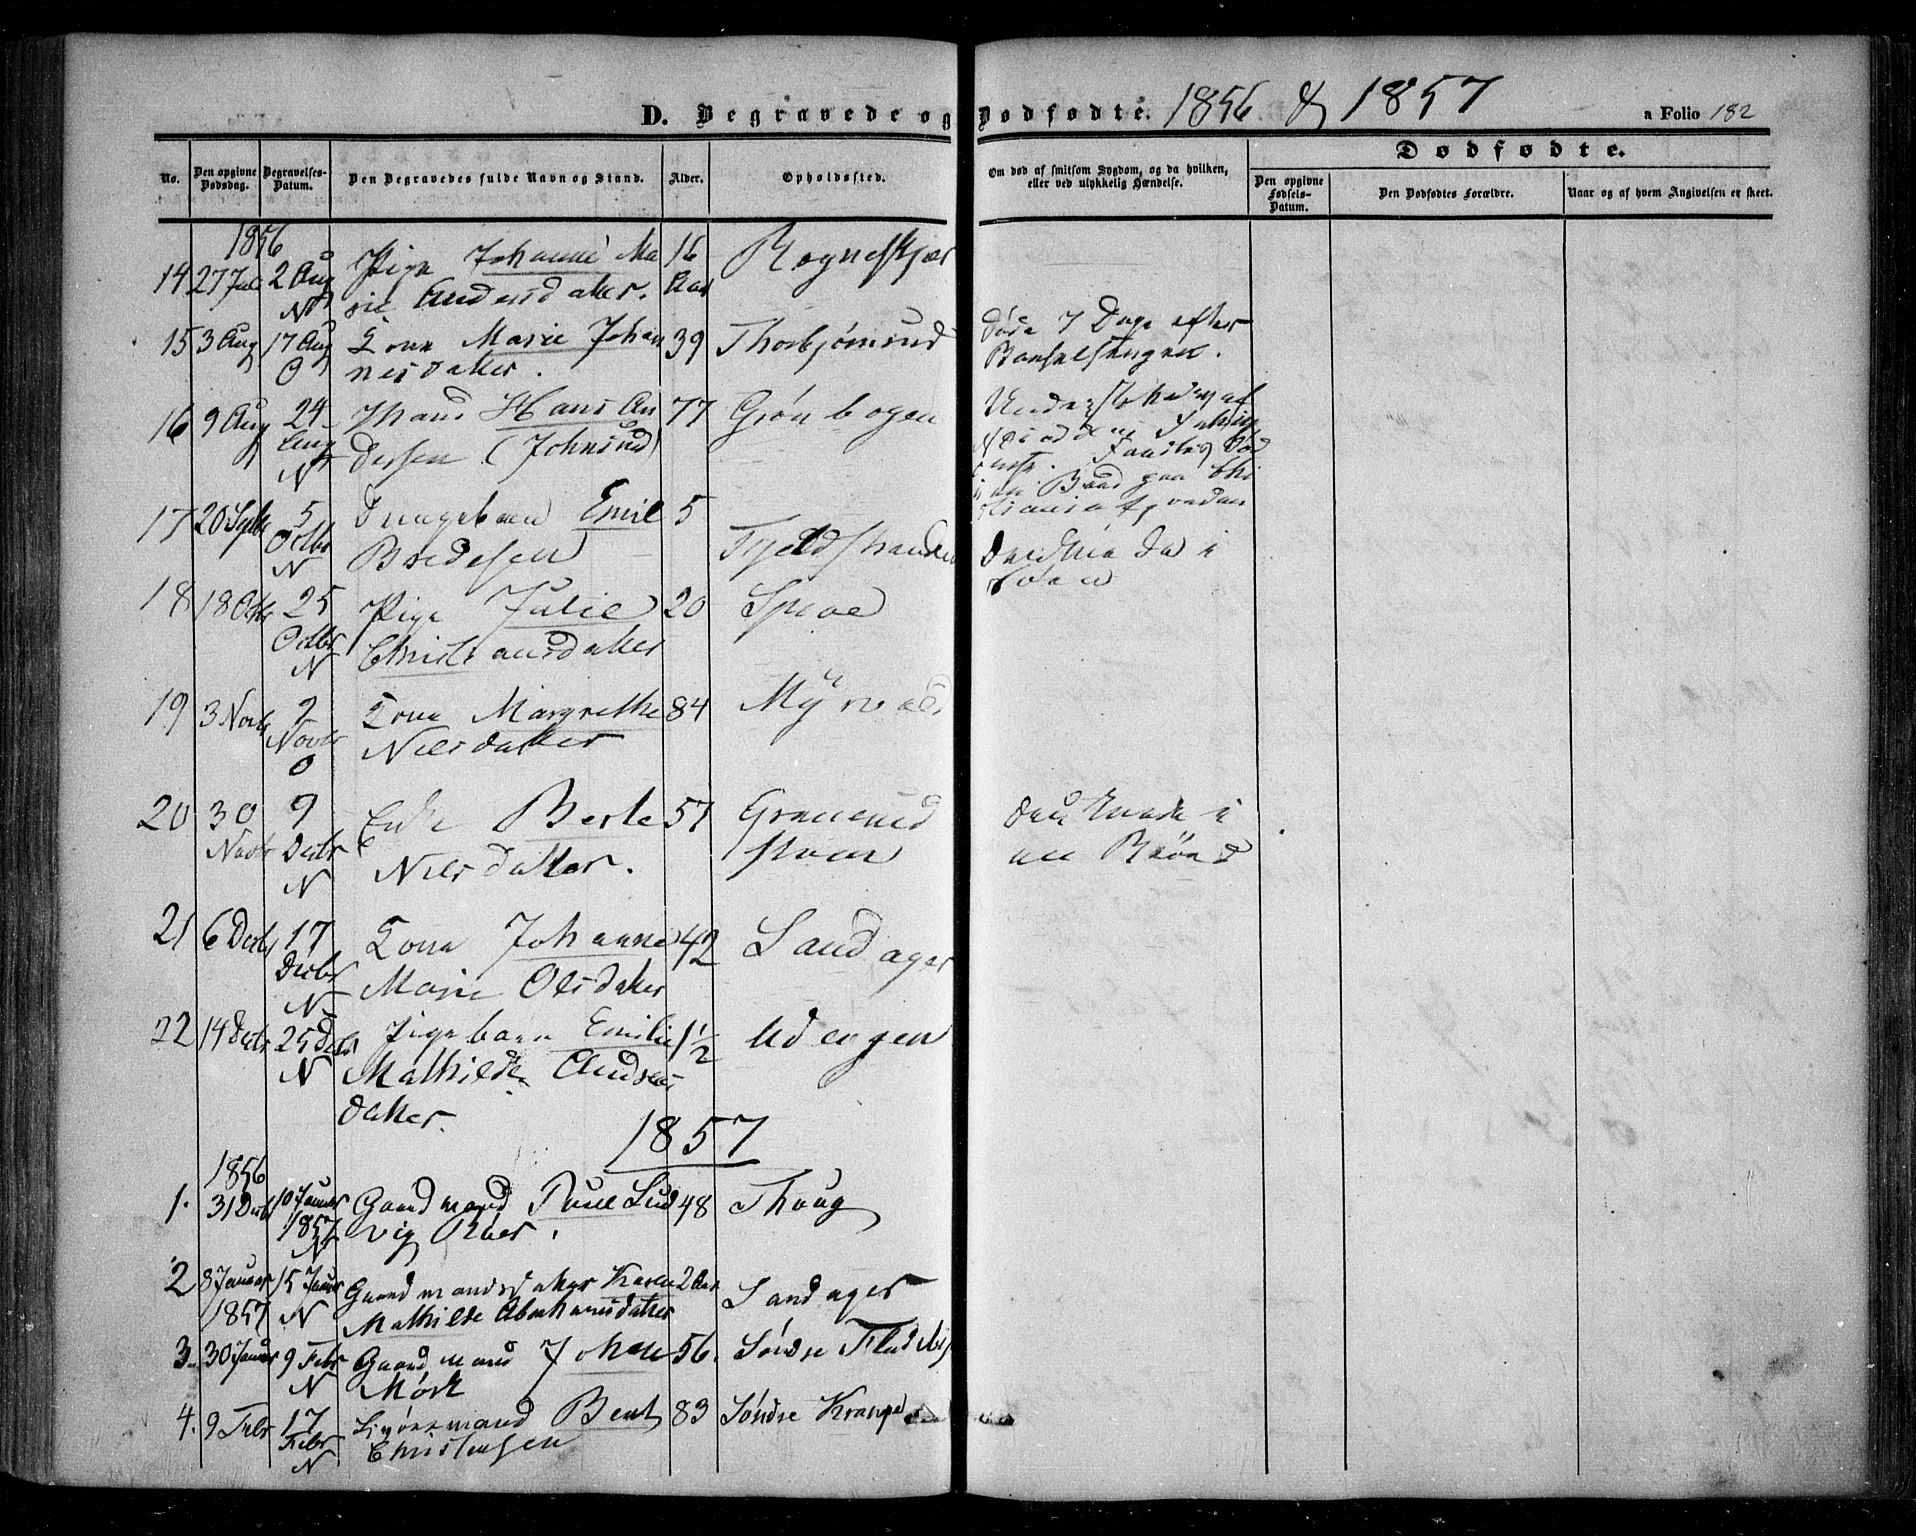 D. Begravede og Dødfødte. 1856 & 1857
a Folio 182
No.
Den opgivne Dødsdag.
Begravelses-Datum.
Den Begravedes fulde Navn og Stand.
Alder.
Opholdssted.
Om død af smitsom Sygdom, og da hvilken, eller ved ulykkelig Hændelse.
Dødfødte.
Den opgivne Fødsels-Datum.
Den Dødfødtes Forældre.
Naar og af hvem Angivelsen er skeet.
1856
14 27 Jul 2 Aug Pige Johanne Ma 16 Rogneskjær
N rie Andersdatter. Aar
15 3 Aug 17 Aug Kone Marie Johan 39 Thorbjørnsrud døde 7 Dage efter
O nesdatter. Barselsengen.
16 9 Aug 24 Mand Hans An 77 Grønbogen
Aug N dersen (Johnsrud)
17 20 Septbr 5 Drengebarn Emil 5
Octbr N Bredesen Fjeldstranden druknede i
18 18 Octbr 25 Pige Julie 20 Sproe
Octbr N Christiansdatter
19 3 Novbr 9 Kone Margrethe 84
Novbr O Nilsdatter
20 30 9 Enke Berte 57
Novbr Decbr Nilsdatter. druknede i
N en Brønd
21 6 Decbr 17 Kone Johanne 42 Sandager
Decbr N Marie Olsdatter
22 14 Decbr 25 Decbr Pigebarn Emilie 1½ Udengen
N Mathilde Anders
datter.
1857
1856
1. 31 Decbr 10 Januar Gaardmand Poul Lud 48 Thoug
1857 N vig Røer.
2 8 Januar 15 Januar Gaardmandsdatter Karen 2 Aar Sandager
1857 N Mathilde Abrahamsdatter
3. 30 Januar 9 Febr Gaardmand Johan 56. Søndre Fladeby
N Mørk
4. 9 Febr 17 Bent 83 Søndre Krange
Febr N Christensen